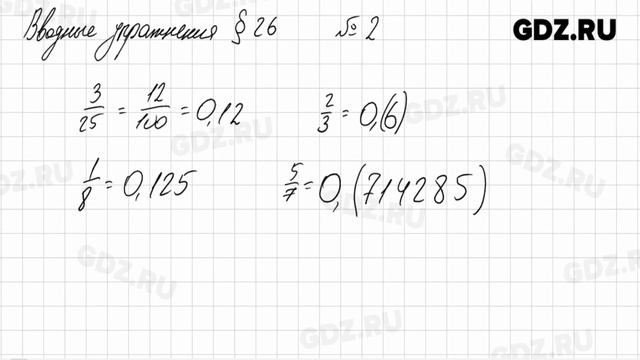 Вводные упражнения § 26 № 2 GDZ.RU
3/25 = 12/100 = 0,12 2/3 = 0,(6)
1/8 = 0,125 5/7 = 0,(714285)
GDZ.RU
GDZ.RU
GDZ.RU
GDZ.RU
GDZ.RU
GDZ.RU
GDZ.RU
GDZ.RU
GDZ.RU